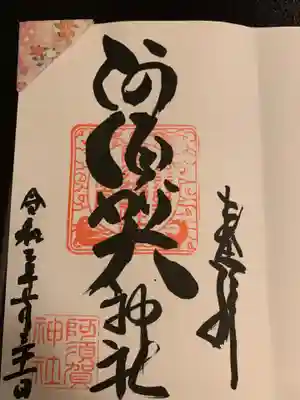 奉拝
阿須賀神社
令和三年 月二十一日
阿須賀
神社